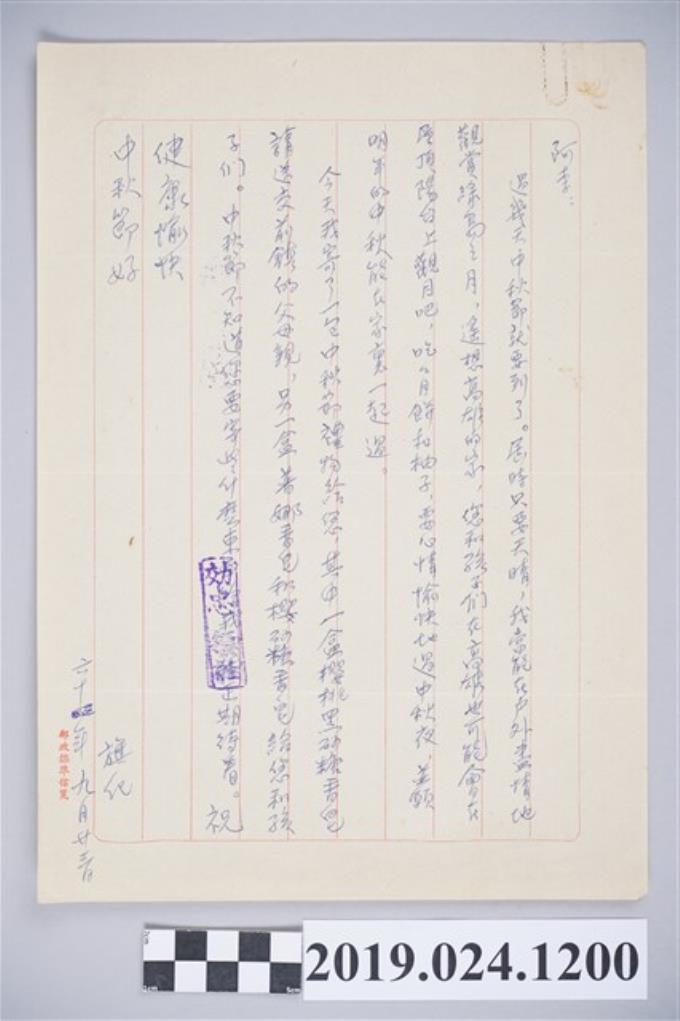 阿李：
過幾天中秋節就要到了。屆時只要天晴，我當能在戶外盡情地
觀賞綠島之月，遙想高雄的家，您和孩子們在高雄也可能會在
屋頂陽台上觀月吧，吃月餅和柚子，要心情愉快地過中秋夜，並願
明年的中秋能在家裏一起過。
今天我寄了一包中秋節禮物給您，其中一盒櫻桃黑砂糖香皂
請送交前鎮的父母親，另一盒著娜香皂和櫻砂糖香皂給您和孩
子們。中秋節不知道您要寄些什麼東 我 正期待着。祝
健康愉快
中秋節好
旗化
六十 年九月廿三日
郵政標準信箋
2019.024.1200